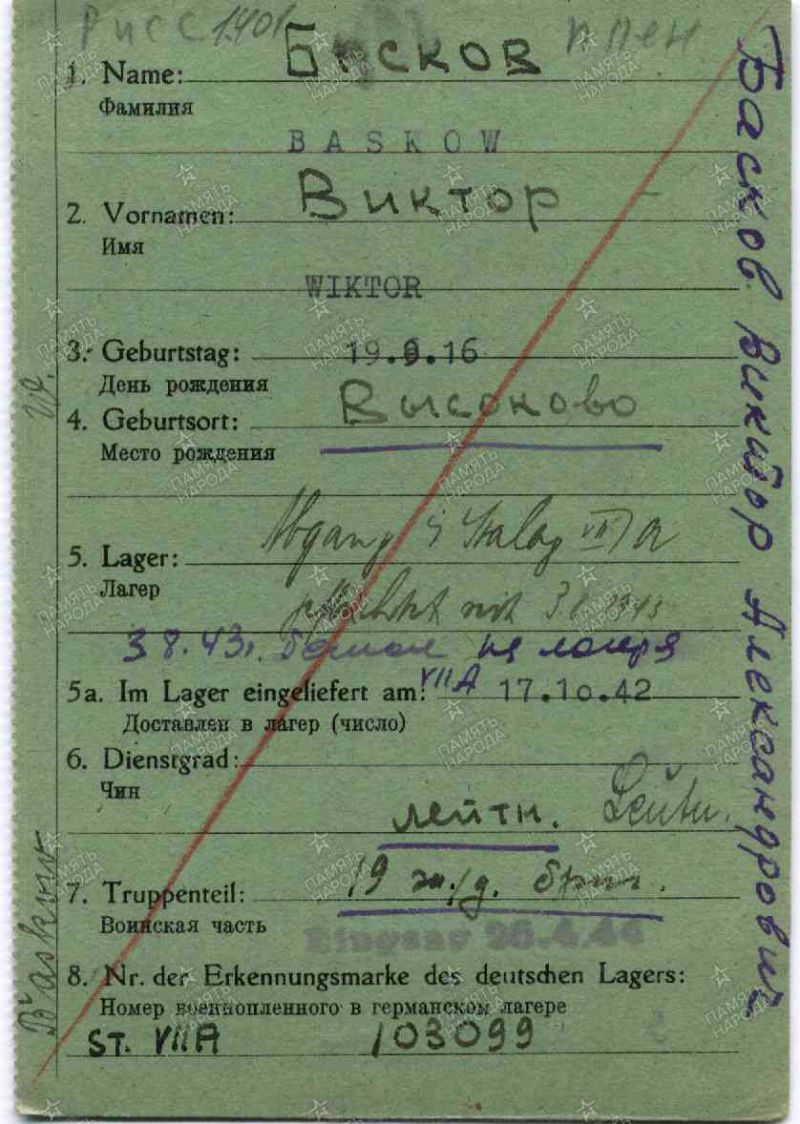 Русс 1401 плен
1. Name: Басков
Фамилия
BASKOW
2. Vornamen: Виктор
Имя
WIKTOR
3. Geburtstag: 19.9.16
День рождения
4. Geburtsort: Высоково
Место рождения
Abgang Stalag VII A
5. Lager:
Лагер
mit 3.8.1943
3 8.43г. бежал из лагеря
5a. Im Lager eingeliefert am: VIIA 17.10.42
Доставлен в лагер (число)
6. Dienstgrad:
Чин
лейтн. Leutn.
7. Truppenteil: 19 ж./д. бриг.
Воинская часть
Eingang 26.4.44
8. Nr. der Erkennungsmarke des deutschen Lagers:
Номер военнопленного в германском лагере
ST. VIIA 103099
Басков Виктор Александрович
Baskow
ПАМЯТЬ НАРОДА